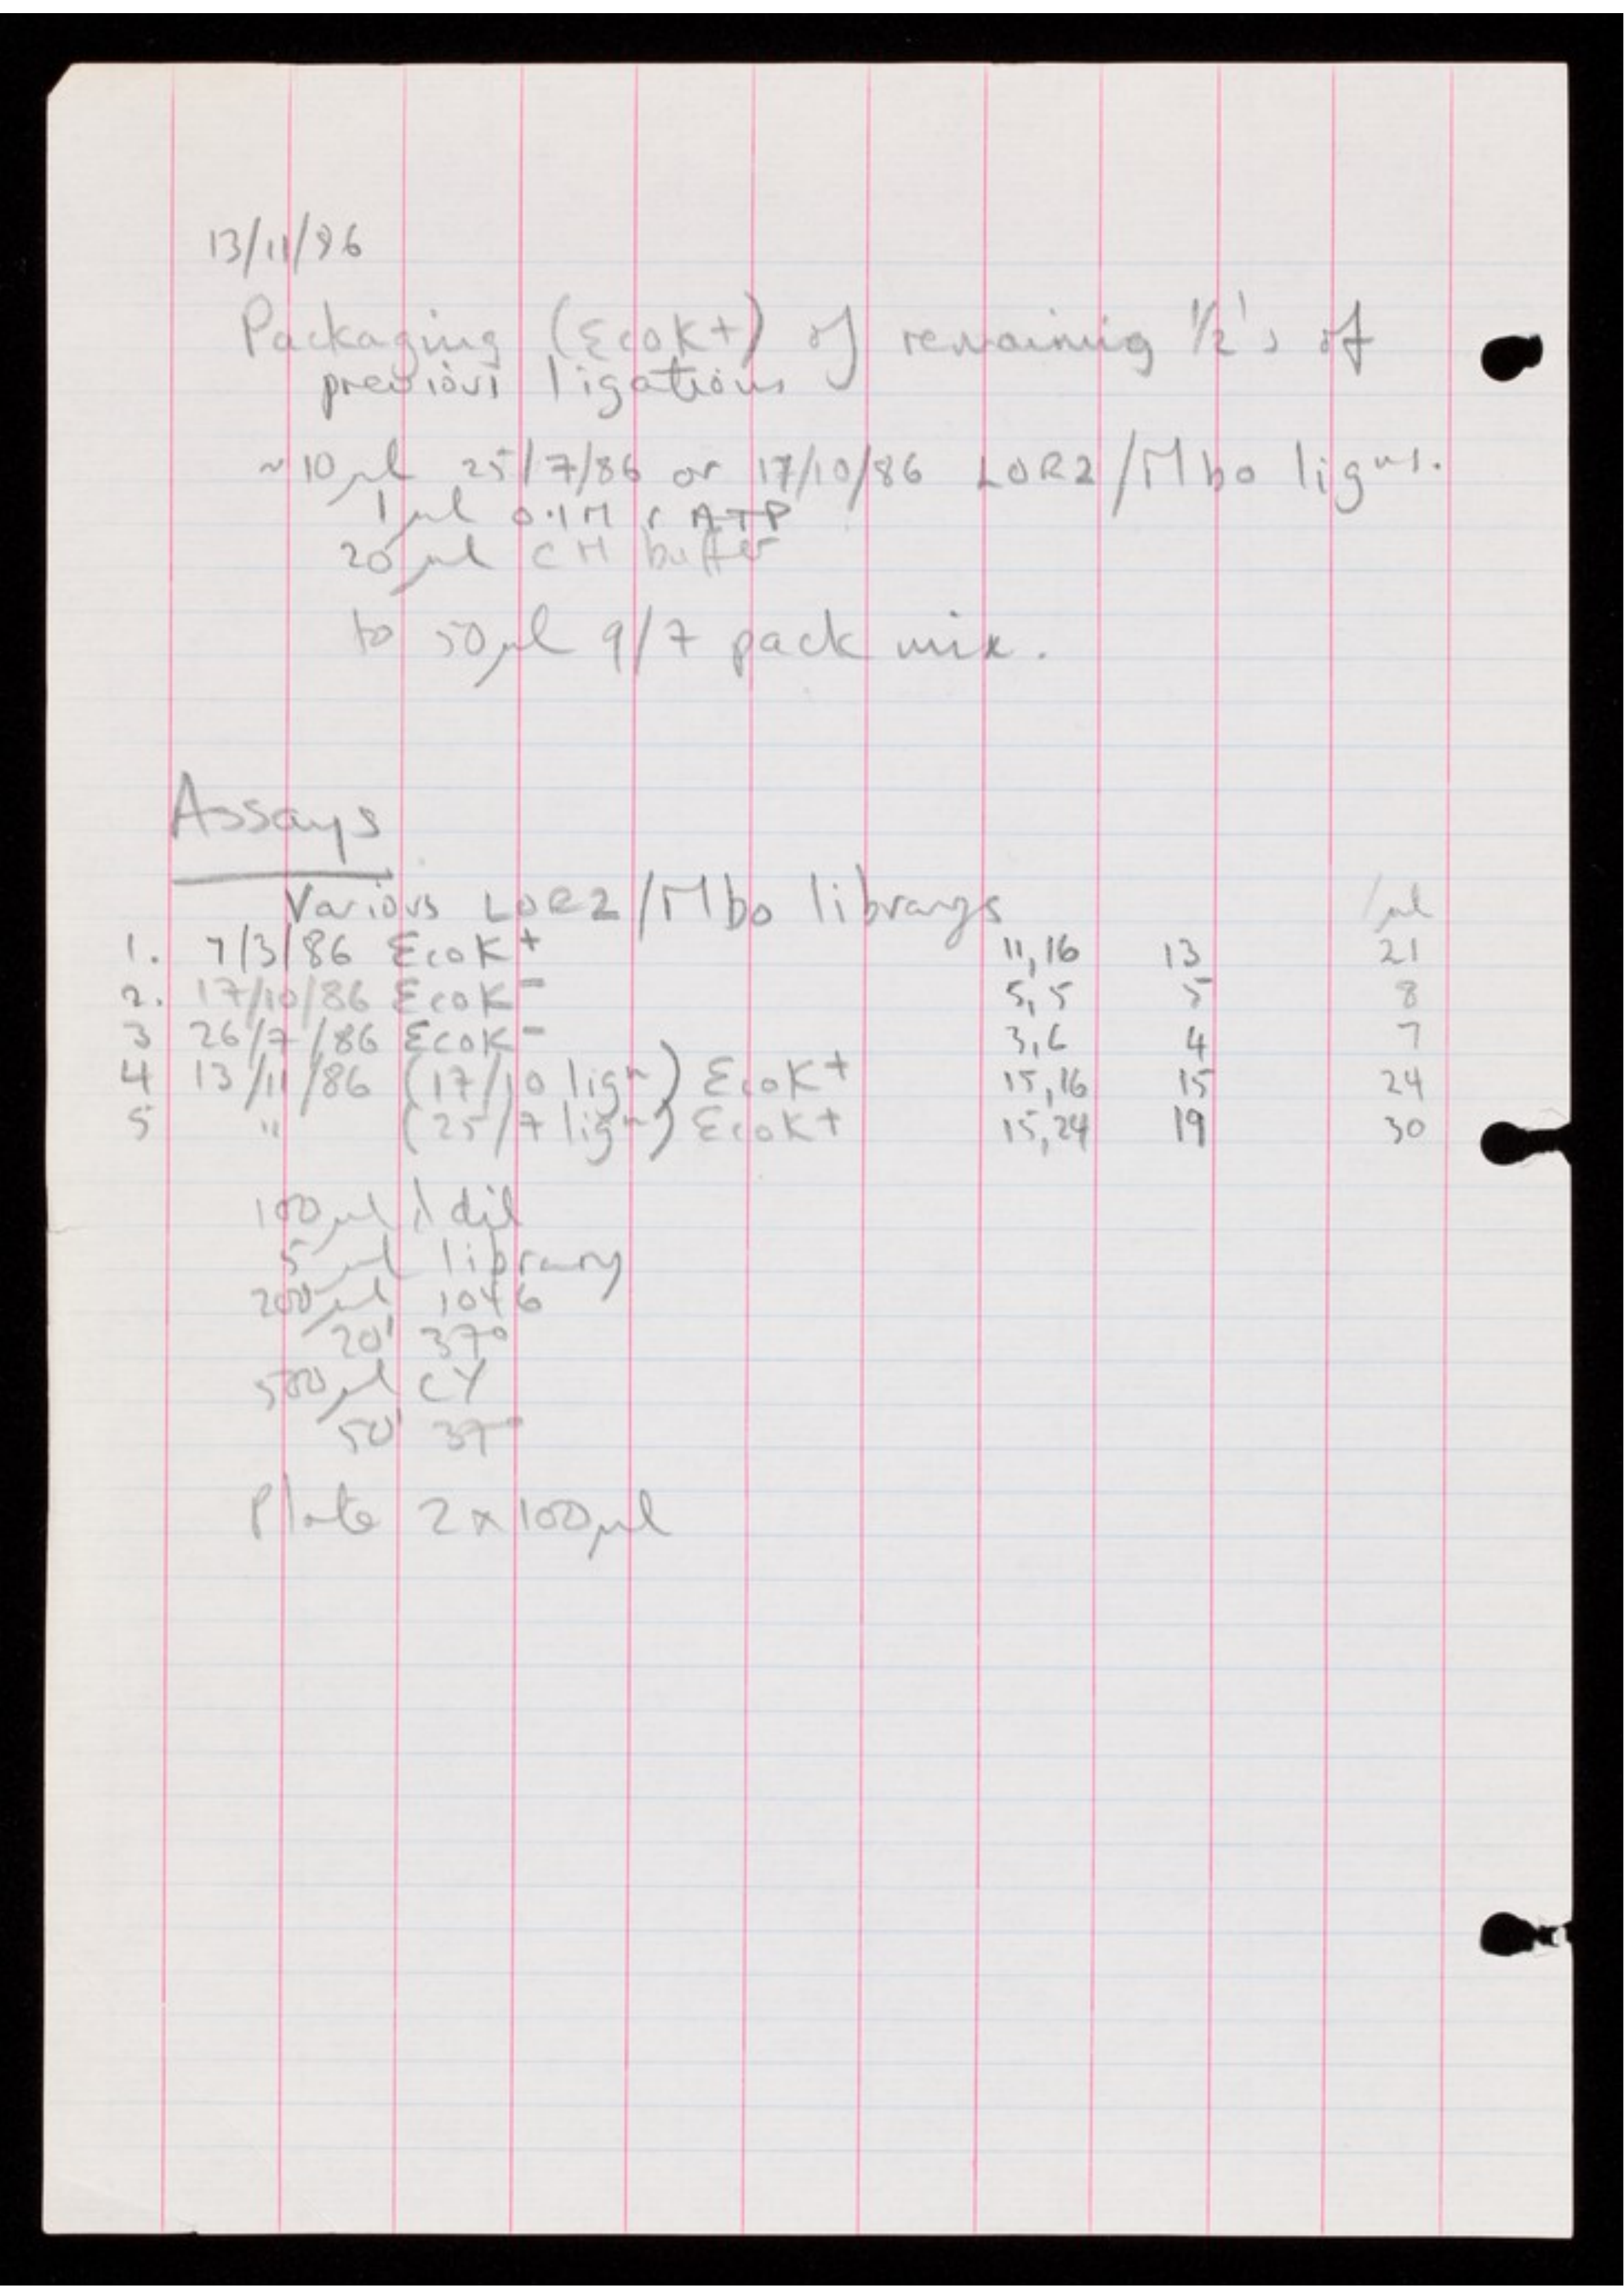 13/11/86
Packaging (EcoK+) of remaining 1/2's of
previous ligations
~10 µl 25/7/86 or 17/10/86 LOR2/Mbo ligns.
1 µl 0.1M rATP
20 µl CH buffer
to 50 µl 9/7 pack mix.
Assays
Various LOR2/Mbo librarys /µl
1. 7/3/86 EcoK+ 11,16 13 21
2. 17/10/86 EcoK- 5,5 5 8
3 26/7/86 EcoK- 3,6 4 7
4 13/11/86 (17/10 lign) EcoK+ 15,16 15 24
5 " (25/7 lign) EcoK+ 15,24 19 30
100 µl λ dil
5 µl library
200 µl 1046
20' 37°
500 µl CY
50' 37°
Plate 2 x 100 µl